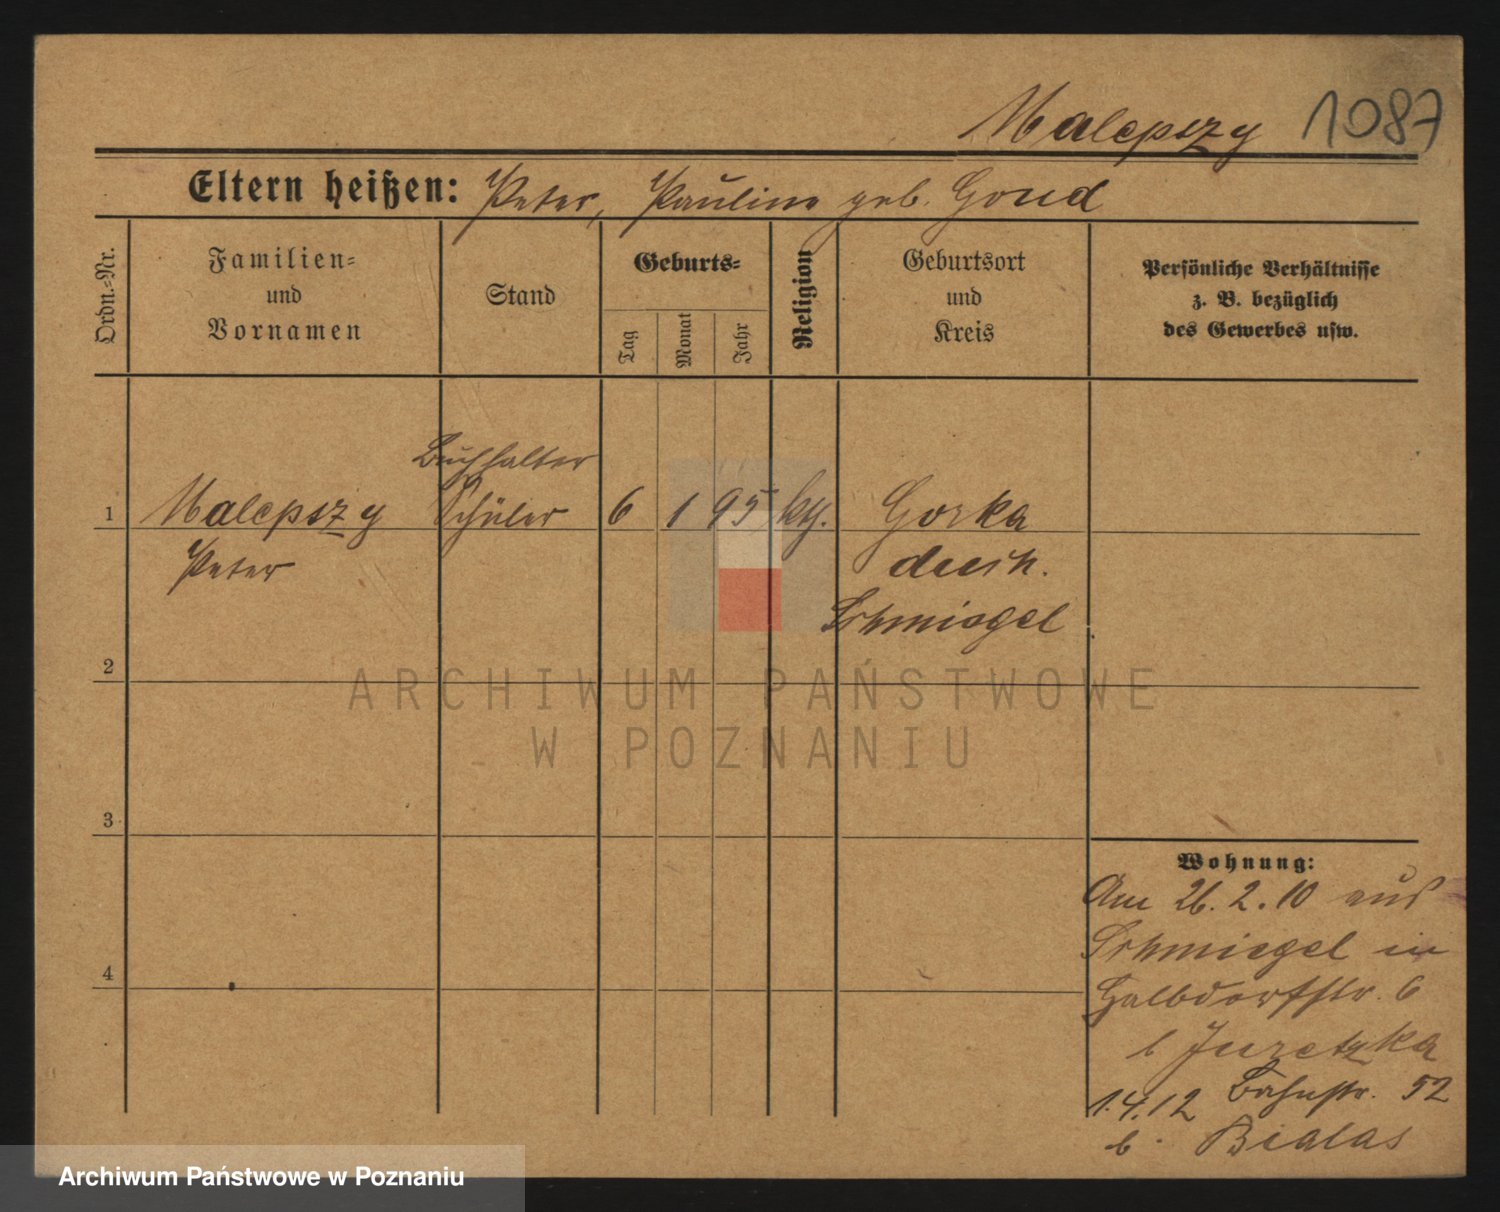 Malepszy 1087
Eltern heißen: Peter, Pauline geb. Goud
Ordn.=Nr.
Familien=
und
Vornamen
Stand
Geburts=
Tag
Monat
Jahr
Religion
Geburtsort
und
Kreis
Persönliche Verhältnisse
z. B. bezüglich
des Gewerbes usw.
Buchhalter
1 Malepszy Schüler 6 1 95 kth. Gorka
Peter
duch.
Schmiegel
2
3
4
Wohnung:
Am 26.2.10 aus
Schmiegel in
Halbdorfstr. 6
b Juretzka
1.4.12 Bahnstr. 52
b. Bialas
ARCHIWUM PAŃSTWOWE
W POZNANIU
Archiwum Państwowe w Poznaniu